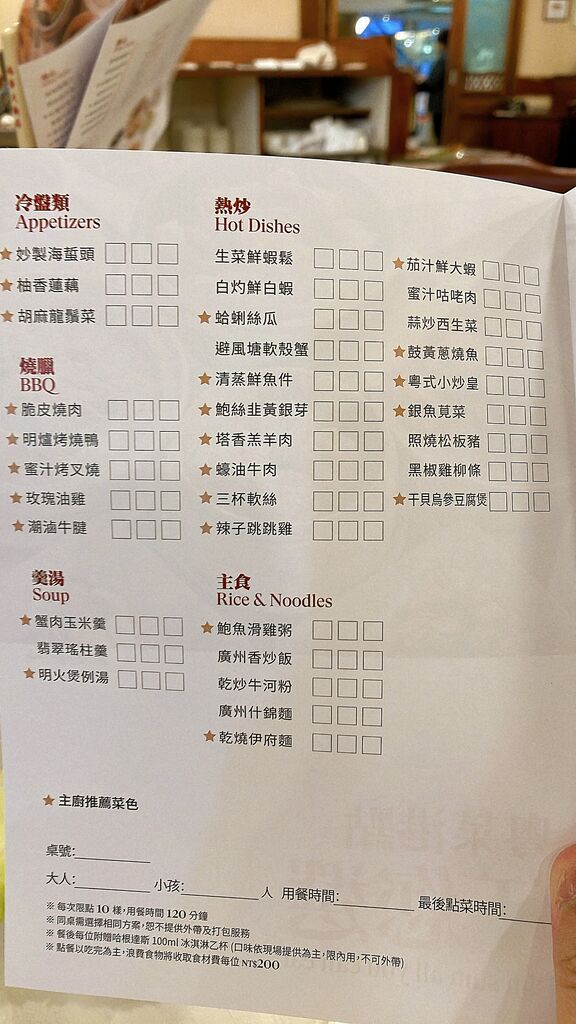 冷盤類
Appetizers
★妙製海蜇頭
★柚香蓮藕
★胡麻龍鬚菜
燒臘
BBQ
★脆皮燒肉
★明爐烤燒鴨
★蜜汁烤叉燒
★玫瑰油雞
★潮滷牛腱
羹湯
Soup
★蟹肉玉米羹
翡翠瑤柱羹
★明火煲例湯
熱炒
Hot Dishes
生菜鮮蝦鬆
白灼鮮白蝦
★蛤蜊絲瓜
避風塘軟殼蟹
★清蒸鮮魚件
★鮑絲韭黃銀芽
★塔香羔羊肉
★蠔油牛肉
★三杯軟絲
★辣子跳跳雞
★茄汁鮮大蝦
蜜汁咕咾肉
蒜炒西生菜
★鼓黃蔥燒魚
★粵式小炒皇
★銀魚莧菜
照燒松板豬
黑椒雞柳條
★干貝烏參豆腐煲
主食
Rice & Noodles
★鮑魚滑雞粥
廣州香炒飯
乾炒牛河粉
廣州什錦麵
★乾燒伊府麵
★主廚推薦菜色
桌號:
大人: 小孩: 人 用餐時間: 最後點菜時間:
※ 每次限點 10 樣,用餐時間 120 分鐘
※ 同桌需選擇相同方案,恕不提供外帶及打包服務
※ 餐後每位附贈哈根達斯 100ml 冰淇淋乙杯 (口味依現場提供為主,限內用,不可外帶)
※ 點餐以吃完為主,浪費食物將收取食材費每位 NT$200